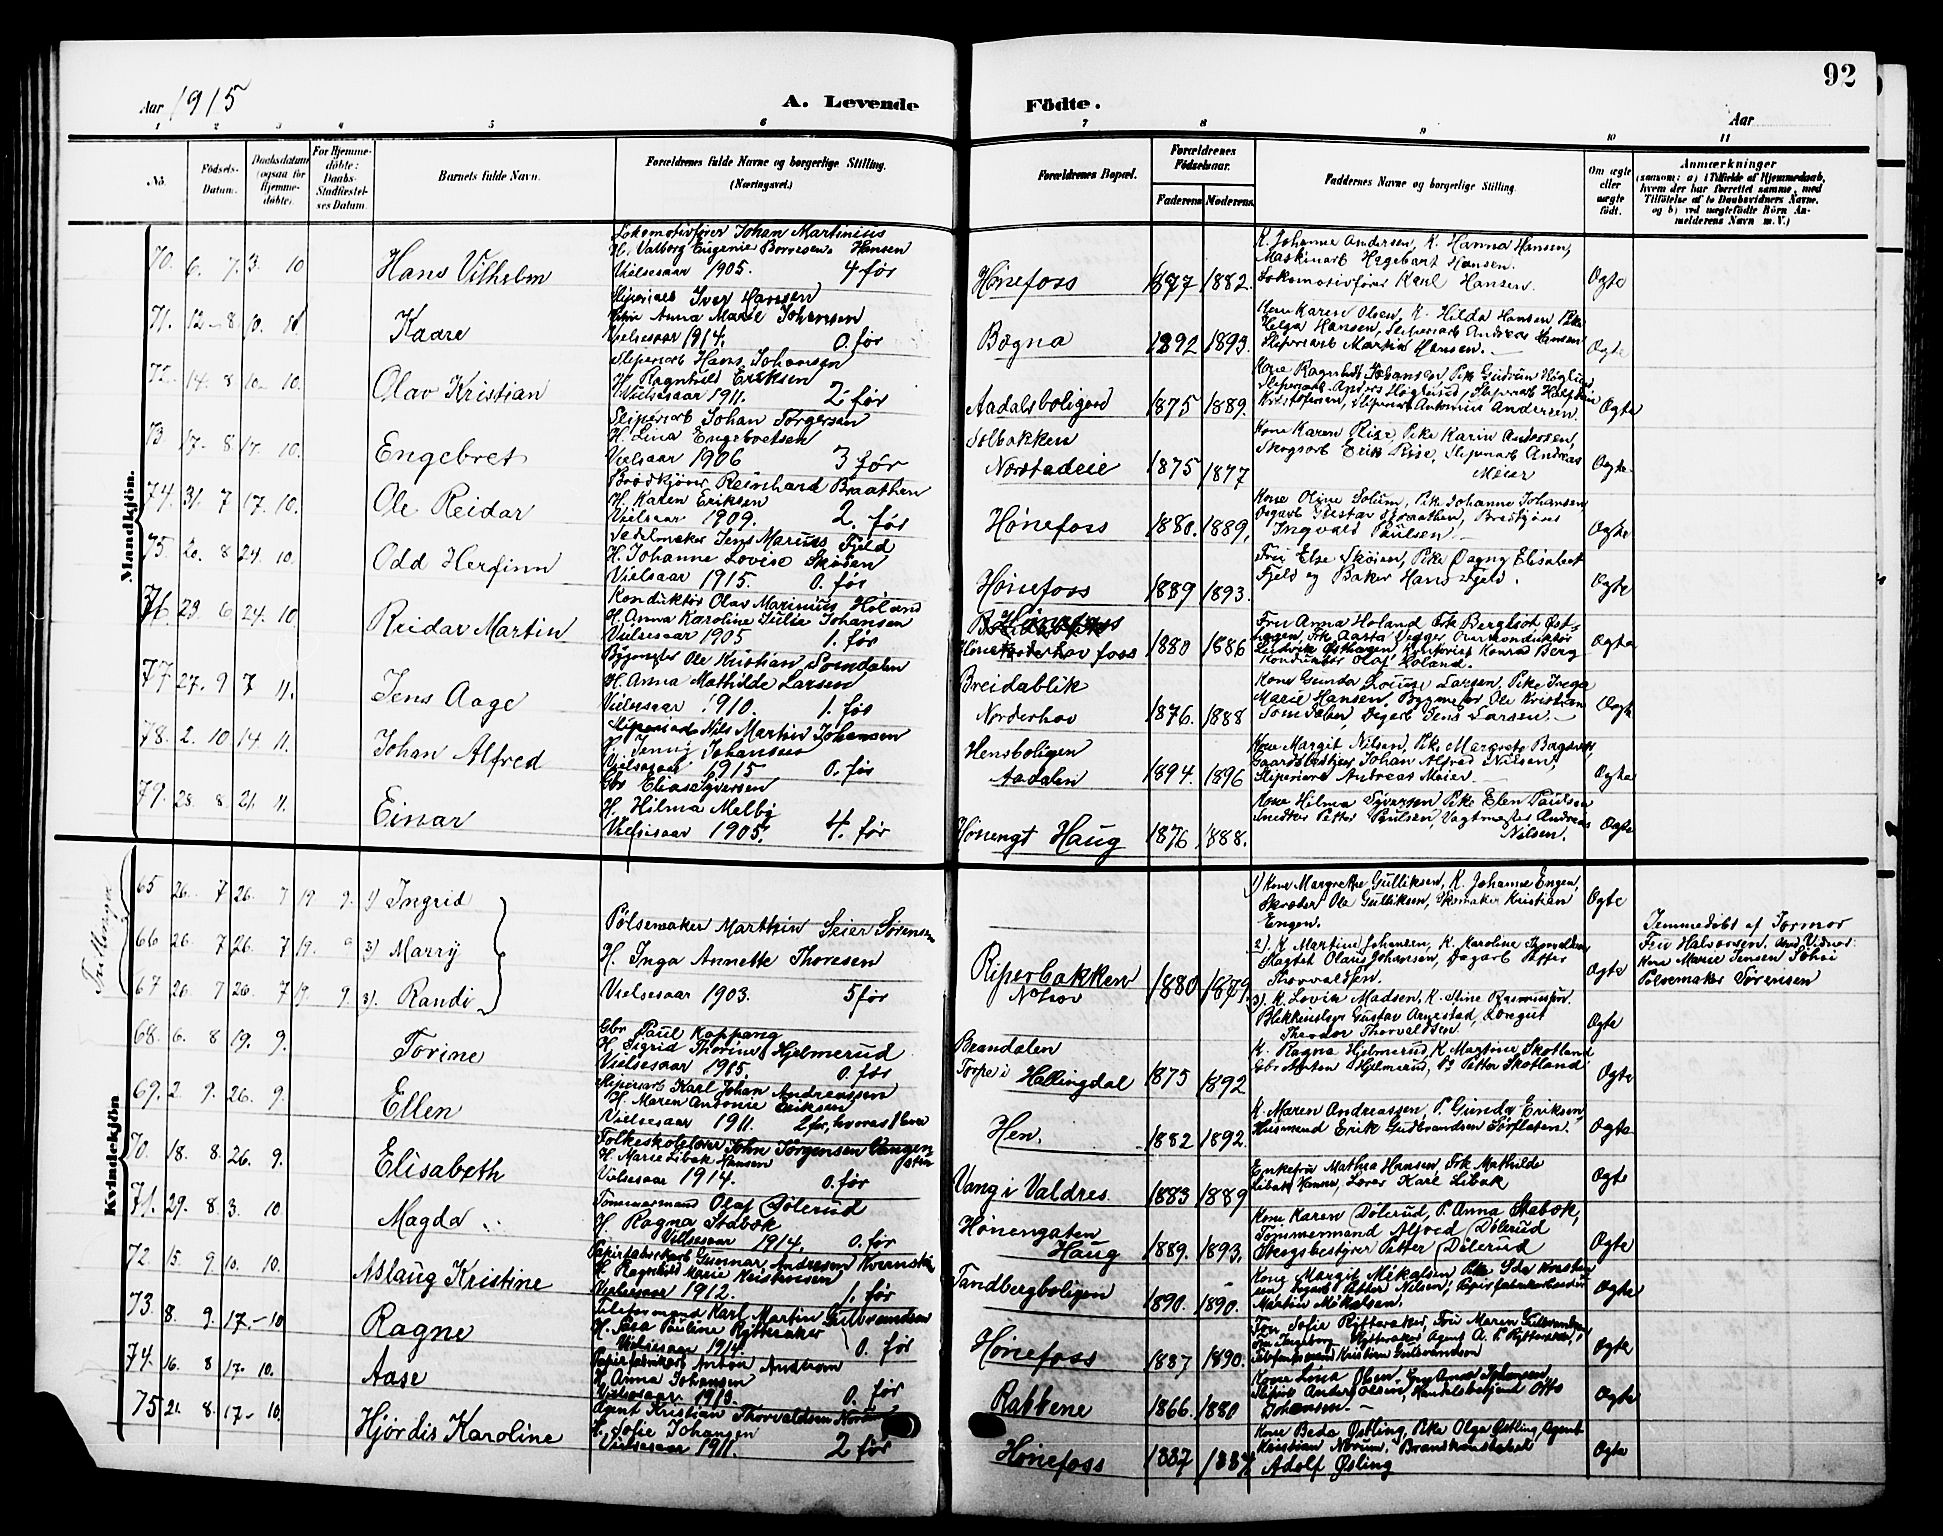 92
Aar 1915
A. Levende Födte.
Aar
1 2 3 4 5 6 7 8 9 10 11
No.
Födsels-Datum.
Daabsdatum (ogsaa for Hjemme-döbte).
For Hjemme-döbte: Daabs-Stadfæstel-ses Datum.
Barnets fulde Navn.
Forældrenes fulde Navne og borgerlige Stilling. (Næringsvei.)
Forældrenes Bopæl.
Forældrenes Födselsaar.
Faderens Moderens
Faddernes Navne og borgerlige Stilling.
Om ægte eller uægte födt.
Anmærkninger
(saasom: a) i Tilfælde af Hjemmedaab, hvem der har forrettet samme, med Tilföielse af to Daabsvidners Navne, og b) ved uægtefödte Börn An-melderens Navn m. V.)
Mandkjön.
70. 6. 7. 3. 10 Hans Vilhelm
Lokomotivfører Johan Martinius
H. Valborg Eugenie Hansen
Vielsesaar 1905. 4 før
Hønefoss 1877 1882.
K. Johanne Andersen, K. Hanna Hansen,
Maskinarb Hagebart Hansen.
Lokomotivfører Karl Hansen. Ægte
71. 12 8 10. 10 Kaare
Sliperiarb Iver Hansen
Anna Marie Johansen
Vielsesaar 1914. 0. før
Bægna 1892 1893.
Kone Karen Olsen, K. Hilda Hansen Pike
Helga Hansen, Sliperiarb Andreas Hansen
Sliperiarb Martin Hansen. Ægte
72. 14. 8 10 10. Olav Kristian
Sliperiarb Hans Johansen
H. Ragnhild Eriksen
Vielsesaar 1911. 2 før
Aadalsboligen 1875 1889.
Kone Ragnhild Johansen, Pike Gudrun Høglund
Sliperiarb. Anders Høglund, Sliperiarb
Kristofersen, Sliperiarb Antonius Andersen. Ægte
73 17. 8 17. 10. Engebret
Sliperiarb Johan Torgersen
H. Lina Engebretsen
Vielsesaar 1906 3 før
Solbakken
Norstadeie 1875 1877
Kone Karen Rise, Pike Karin Andersen,
Skogsarb Erik Rise, Sliperiarb Andreas
Meier Ægte
74. 31. 7 17. 10. Ole Reidar
Brødkjører Reinhard Braathen
H. Karen Eriksen
Vielsesaar 1909. 2. før
Hønefoss 1880. 1889.
Kone Oline Solum, Pike Johanne Johansen
Gustav Braathen,
Ingvald Paulsen. Ægte
75. 20. 8 24 10. Odd Herfinn
Sadelmaker Jens Marius Fjeld
H. Johanne Lovise Skøien
Vielsesaar 1915. 0. før
Hønefoss 1889 1893.
Fru Else Skøien, Pike Dagny Elisabet
Fjeld og Baker Hans Fjeld. Ægte
76. 23. 6 24. 10. Reidar Martin
Konduktør Olav Marinius Høland
H. Anna Karoline Julie Johansen
Vielsesaar 1905 1. før
Hønefoss 1880 1886
Fru Anna Holand Frk Bergljot Øst-
hagen, Frk Aasta Vegger, Overkonduktør
Ludvik Østhagen, Kontorist Konrad Berg
Konduktør Olaf Holand. Ægte
77. 27. 9 7 11. Jens Aage
Bygmester Ole Kristian Somdalen
H. Anna Mathilde Larsen
Vielsesaar 1910. 1. før
Breidablik
Norderhov 1876. 1888
Kone Gunda Louise Larsen, Pike Inga
Marie Hansen, Bygmester Ole Kristian
Somdalen, Dagarb Jens Larsen. Ægte
78. 2. 10 14 11. Johan Alfred
Sliperiarb Nils Martin Johansen
H. Jenny Johansen
Vielsesaar 1915 0. før
Hensboligen
Aadalen 1894. 1896
Kone Margit Nilsen, Pike Margrete
Johan Alfred Nilsen,
Sliperiarb Andreas Meier. Ægte
79. 28. 8. 21. 11. Einar
Gbr Elias Syversen
H. Hilma Melby
Vielsesaar 1905. 4. før
Hønengt Haug 1876 1888.
Kone Hilma Syversen Pike Elen Paulsen
Smedter Petter Paulsen, Vagtmester Andreas
Nilsen. Ægte
Kvindekjön
Trillinger
65 26. 7 26. 7 19 9. 1) Ingrid
66 26. 7 26. 7 19. 9 2) Marry
67 26. 7 26. 7 19. 9. 3). Randi
Pølsemaker Marthin Seier Sørensen
H. Inga Annette Thoresen
Vielsesaar 1903. 5 før
Riperbakken
Nohov 1880 1879.
1) Kone Margrethe Gulliksen, K. Johanne Engen,
Skræder Ole Gulliksen, Skomaker Kristian
Engen. Ægte
2). K Martine Johansen, K. Karoline Thorvaldsen
Olaus Johansen, Dagarb Petter
Thorvaldsen. Ægte
3). K. Lovise Madsen, K. Stine Rasmussen.
Blikkenslager Gustav Aarestad,
Theodor Thorvaldsen. Ægte
Jemmedøbt af Jormor
Fru Halvorsen.
Kone Marie Jensen
Pølsemaker Sørensen
68. 6. 8 19. 9. Torine
Gbr Paul Kappang
H Sigrid Thorine Hjelmerud
Vielsesaar 1915. 0. før
Brandalen
Torpe i Hallingdal 1875 1892
K. Ragna Hjelmerud, K Martine Skotland
Gbr Morten Hjelmerud, Petter Skotland Ægte
69. 2 9. 26. 9. Ellen
Sliperiarb Karl Johan Andreassen
H. Maren Antonie Eriksen
Vielsesaar 1911. 2 før,
Hen. 1882 1892.
K. Maren Andreassen, P. Gunda Eriksen,
Husmand Erik Gudbrandsen Sørflaten. Ægte
70. 18. 8. 26. 9. Elisabeth
Folkeskolelærer John Jørgensen Vangen
H. Marie Libak Hansen
Vielsesaar 1914. 0. før
Vang i Valdres 1883 1889
Enkefru Mathea Hansen, Frk Mathilde
Libak Hansen, Lærer Karl Libak Ægte
71. 29. 8 3. 10. Magda
Tømmermand Olaf Dølerud
H. Ragna Stabæk
Vielsesaar 1914. 0. før
Hønengaten
Haug 1889. 1893.
Kone Karen Dølerud, P. Anna Stabæk,
Tømmermand Alfred Dølerud
Skogsbestyrer Petter Dølerud Ægte
72. 15. 9 10. 10. Aslaug Kristine
Papirfabrikarb Gunnar Andresen
H. Ragnhild Marie Kristensen
Vielsesaar 1912. 1. før
Tandbergboligen 1890. 1890.
Kone Margit Mikalsen Pike Ida Kristen
sen, Petter Nilsen, Papirfabrikarbeider
Martin Mikalsen. Ægte
73. 8. 9. 17. 10 Ragne
Telefonmand Karl Martin Gulbrandsen
H. Pauline Rytteraker
Vielsesaar 1914. 0. før
Hønefoss 1887 1890.
Fru Sofie Rytteraker, Fru Maren Gulbrandsen
Ingeborg Rytteraker Agent A. P. Rytteraker,
Telefonmand Kristian Gulbrandsen Ægte
74. 16. 8 17. 10. Aase
Papirfabrikarb Anton
H. Anna Johansen
Vielsesaar 1913. 0. før
Rabbene 1866. 1880
Kone Lina Olsen, Anna Johansen,
Anders Olsen, Handelsbetjent Otto
Johansen. Ægte
75 21. 8. 17. 10. Hjørdis Karoline
Agent Kristian Thorvaldsen Norum
H. Sofie Johansen
Vielsesaar 1911. 2 før
Hønefoss 1887 1887
Kone Beda Østling, Pike Olga Østling, Agent
Kristian Norum, Brandkonstabel
Adolf Østling Ægte